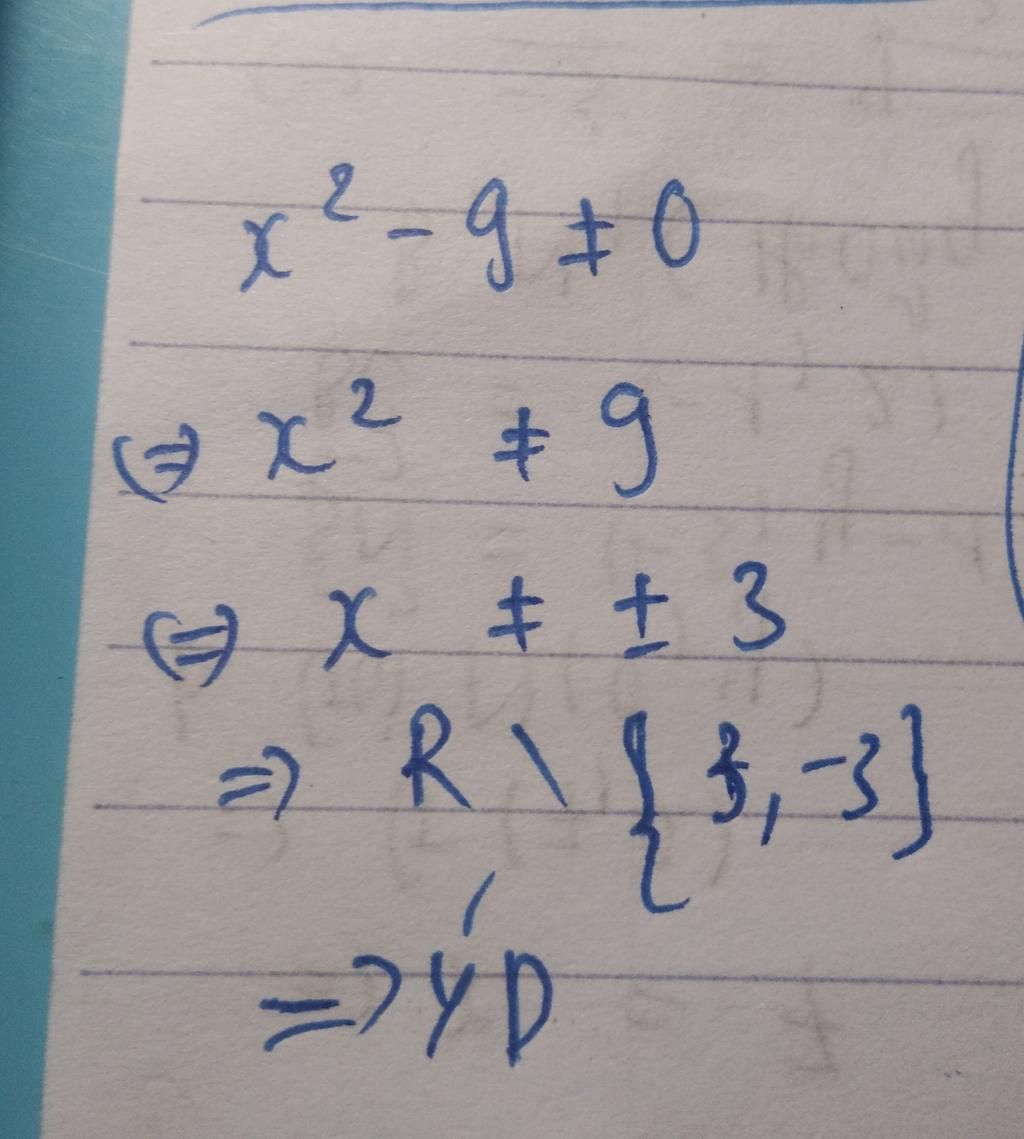 x² - 9 ≠ 0
⇔ x² ≠ 9
⇔ x ≠ ± 3
⇒ R \ { 3, -3}
⇒ ÝD